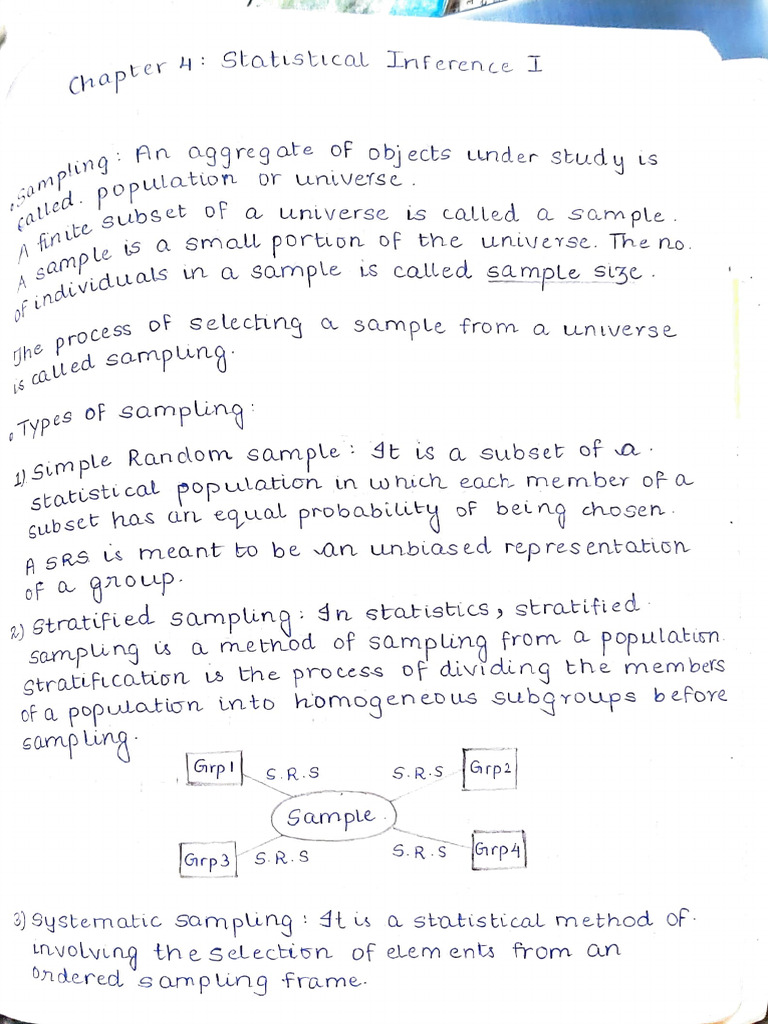 Chapter 4: Statistical Inference I
• Sampling: An aggregate of objects under study is
called. population or universe.
A finite subset of a universe is called a sample.
A sample is a small portion of the universe. The no.
of individuals in a sample is called sample size.
The process of selecting a sample from a universe
is called sampling.
• Types of sampling:
1) Simple Random sample: It is a subset of a
statistical population in which each member of a
subset has an equal probability of being chosen.
A SRS is meant to be an unbiased representation
of a group.
2) Stratified sampling: In statistics, stratified
sampling is a method of sampling from a population.
Stratification is the process of dividing the members
of a population into homogeneous subgroups before
sampling.
Grp1 S.R.S S.R.S Grp2
Sample
Grp3 S.R.S S.R.S Grp4
3) Systematic sampling: It is a statistical method of
involving the selection of elements from an
ordered sampling frame.